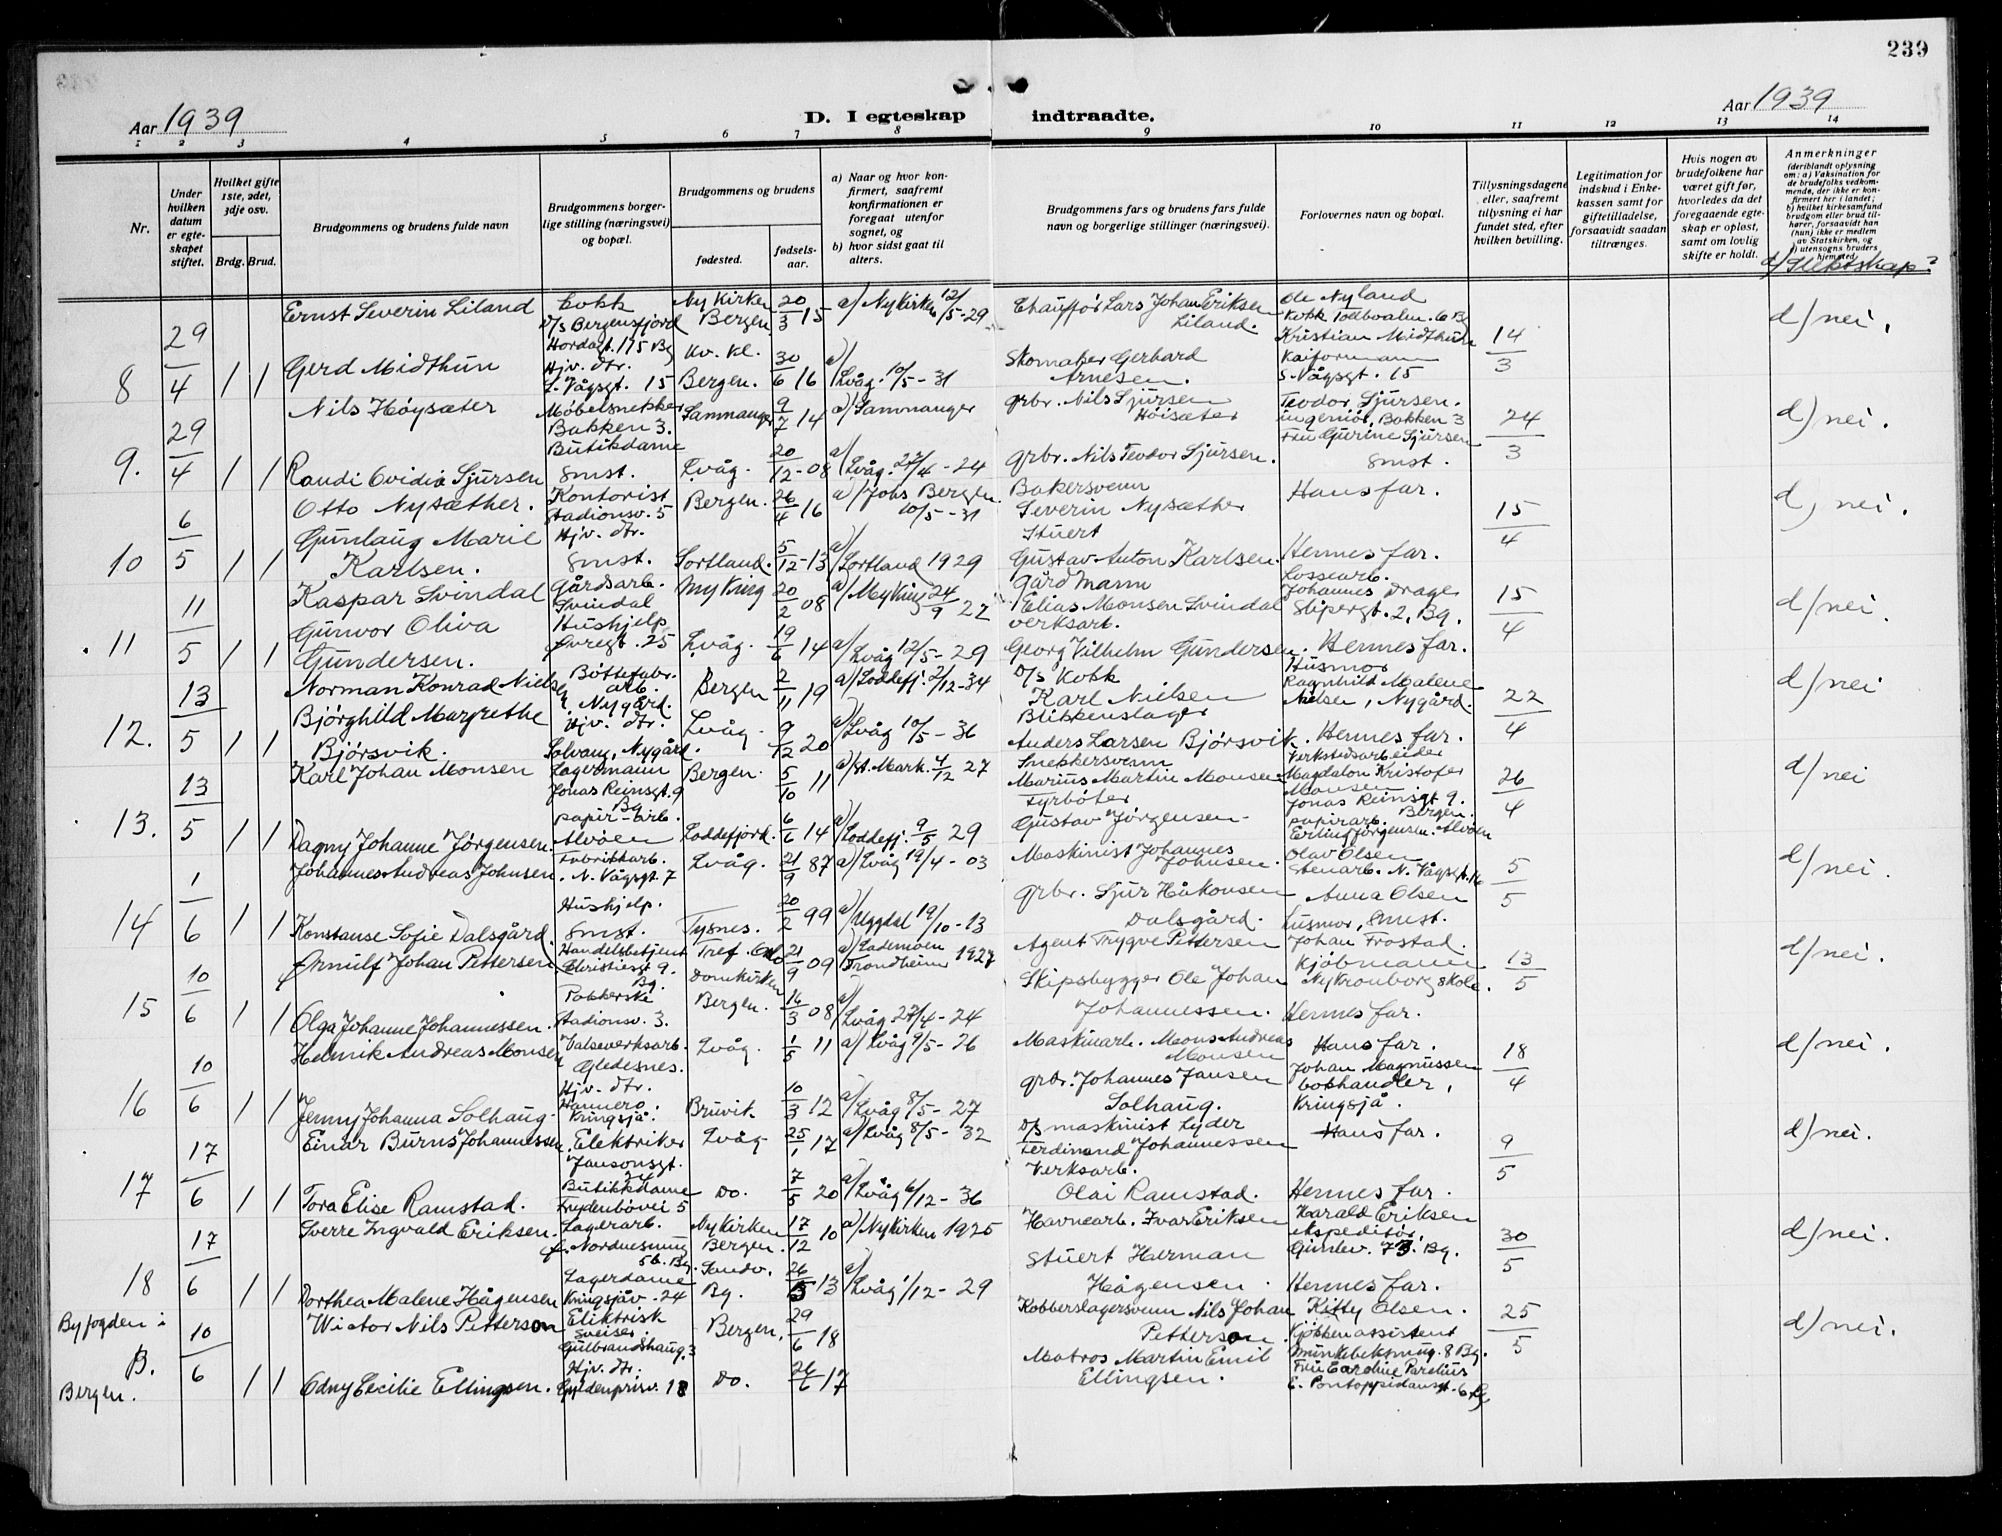 239
Aar 1939
D. I egteskap indtraadte.
Aar 1939
1 2 3 4 5 6 7 8 9 10 11 12 13 14
Nr.
Under hvilken datum er egteskapet stiftet.
Hvilket gifte 1ste, 2det, 3dje osv.
Brdg. Brud.
Brudgommens og brudens fulde navn
Brudgommens borgerlige stilling (næringsvei) og bopæl.
Brudgommens og brudens
fødested.
fødselsaar.
a) Naar og hvor konfirmert, saafremt konfirmationen er foregaat utenfor sognet, og
b) hvor sidst gaat til alters.
Brudgommens fars og brudens fars fulde navn og borgerlige stillinger (næringsvei).
Forlovernes navn og bopæl.
Tillysningsdagene eller, saafremt tillysning ei har fundet sted, efter hvilken bevilling.
Legitimation for indskud i Enkekassen samt for giftetilladelse, forsaavidt saadan tiltrænges.
Hvis nogen av brudefolkene har været gift før, hvorledes da det foregaaende egteskap er opløst, samt om lovlig skifte er holdt.
Anmerkninger
(deriblandt oplysning om: a) Vaksination for de brudefolks vedkommende, der ikke er konfirmert her i landet; b) hvilket kirkesamfund brudgom eller brud tilhører, forsaavidt han (hun) ikke er medlem av Statskirken, og c) utensogns bruders hjemsted.
d/ Slektskap?
8 29/4 1 1
Ernst Severin Liland
Kokk D/s Bergensfjord Hordagt. 175 Bg
Nykirken Bergen 20/3 15
a/ Nykirken 12/5-29
Chauffør Lars Johan Eriksen Liland.
Ole Nyland Kokk Tollboalm. 6 Bg
14/3
d/ nei.
Gerd Midthun
Hjv. dtr. S. Vågsgt. 15
Kv. kl. Bergen. 30/6 16
a/ Lvåg. 10/5-31
Skomaker Gerhard Arnesen.
Kristian Midthun Kaiformann S. Vågsgt. 15
9. 29/4 1 1
Nils Høysæter
Møbelsnekker Bakken 3.
Samnanger 9/7 14
a/ Samnanger
Grbr. Nils Sjursen Høisæter
Teodor Sjursen. ingeniør, Bakken 3
24/3
d/ nei.
Randi Ovidia Sjursen
Butikdame Smst.
Lvåg. 20/12-08
a/ Lvåg. 27/4-24
Grbr. Nils Teodor Sjursen.
Fru Gurine Sjursen Smst.
10 6/5 1 1
Otto Nysæther.
Kontorist Stadionsv. 5
Bergen. 26/4 16
a/ Johs Bergen 10/5-31
Bakersvenn Severin Nysæther
Hans far.
15/4
d/ nei.
Gunlaug Marie Karlsen.
Hjv. dtr. Smst.
Sortland. 5/12-13
a/ Sortland 1929
Stuert Gustav Anton Karlsen.
Hennes far.
11 11/5 1 1
Kaspar Svindal
Gårdsarb. Svindal
Myking 20/2 08
a/ Myking 24/9 22
Gårdmann Elias Monsen Svindal
Lossearb. Johannes Drage Slipergt. 2, Bg.
15/4
d/ nei.
Gunvor Oliva Gundersen.
Hushjelp Øvregt. 25
Lvåg. 19/6 14
a/ Lvåg 12/5-29
verksarb. Georg Vilhelm Gundersen.
Hennes far.
12. 13/5 1 1
Norman Konrad Nielsen
Bøttefabr. arb. Nygård.
Bergen 2/11 19
a/ Loddefj. 2/12-34
D/s Kokk Karl Nielsen
Husmor Ragnhild Malene Nielsen, Nygård.
22/4
d/ nei
Bjørghild Margrethe Bjørsvik.
Hjv. dtr. Solvang, Nygård.
Lvåg. 9/12 20
a/ Lvåg 10/5-36
Blikkenslager Anders Larsen Bjørsvik.
Hennes far.
13. 13/5 1 1
Karl Johan Monsen
Lagermann Jonas Reinsgt. 9 Bg
Bergen. 5/10 11
a/ St. Mark. 4/12 27
Snekkersvenn Marius Martin Monsen
Verkstedsarbeider Magdalon Kristofer Monsen Jonas Reinsgt 9. Bergen.
26/4
d/ nei
Dagny Johanne Jørgensen.
papir-arb. Alvøen
Loddefjord. 6/6 14
a/ Loddefj. 9/5 29
Fyrbøter Gustav Jørgensen
papirarb. Erling Jørgensen. Alvøen
14 1/6 1 1
Johannes Andreas Johnsen
Fabrikkarb. N. Vågsgt. 7
Lvåg. 21/9 87
a/ Lvåg 19/4-03
Maskinist Johannes Johnsen.
Olav Olsen Stenarb. N. Vågsgt. 16
5/5
d/ nei.
Konstanse Sofie Dalsgård.
Hushjelp. Smst.
Tysnes. 20/2 99
a/ Uggdal 19/10-13
Grbr. Sjur Håkonsen Dalsgård.
Anna Olsen husmor, Smst.
15 10/6 1 1
Arnulf Johan Pettersen
Handelsbetjent Christiesgt 9. Bg.
Tref. Oslo 21/9 09
a/ Lademoen Trondheim 1927
Agent Trygve Pettersen
Johan Frostad. Kjøbmann Nykronborg skole.
13/5
d/ nei.
Olga Johanne Johannessen.
Pakkerske Stadionsv. 3.
Domkirken Bergen. 16/3 08
a/ Lvåg 27/4-24
Skipsbygger Ole Johan Johannessen.
Hennes far.
16 10/6 1 1
Henrik Andreas Monsen
Valseverksarb. Gledesnes.
Lvåg. 1/5 11
a/ Lvåg 9/5-26
Maskinarb. Mons Andreas Monsen
Hans far.
18/4
d/ nei.
Jenny Johanna Solhaug.
Hjv. dtr. Hannero. Kringsjå.
Bruvik. 10/3 12
a/ Lvåg 8/5-27
Grbr. Johannes Jansen Solhaug.
Johan Magnussen bokhandler, Kringsjå.
17 17/6 1 1
Einar Burns Johannessen
Elektriker Jansonsgt.
Lvåg. 25/1 17
a/ Lvåg 8/5-32
D/s maskinist Lyder Ferdinand Johannessen
Hans far.
9/5
d/ nei.
Tora Elise Ramstad.
Butikkdame Frydenbøvei 5
Do. 7/5 20
a/ Lvåg 6/12-36
Verksarb. Olai Ramstad.
Hennes far.
18 17/6 1 1
Sverre Ingvald Eriksen.
Lagerarb. Nordnesmug 56. Bg.
Nykirken Bergen. 17/12 10
a/ Nykirken 1925
Havnearb. Ivar Eriksen
Harald Eriksen ekspeditør. Gimlev. 73. Bg.
30/5
d/ nei.
Dorthea Malene Hågensen
Lagerdame Kringsjåv. 24
Sandv. Bg. 26/5 13
a/ Lvåg 1/12-29
Stuert Herman Hågensen.
Hennes far.
Byfogden i B. Bergen. 10/6 1 1
Wictor Nils Petterson
Elektrisk sveiser Gulbrandshaug. 3
Bergen. 29/6 18
Kobberslagersvenn Nils Johan Petterson.
Kitty Olsen. Kjøkkenassistent Munkebeksmug. 8 Bg.
25/5
d/ nei.
Odny Cecilie Ellingsen.
Hjv. dtr. Gyldenprisv. 18
Do. 26/6 17
Matros Martin Emil Ellingsen.
Fru Caroline Parelius C. Pontoppidansgt. 6 Bg